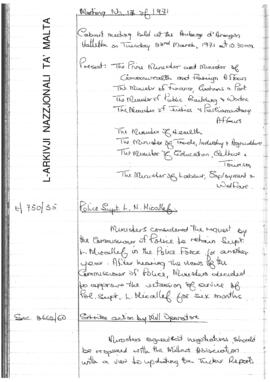 L-ARKIVJI NAZZJONALI TA' MALTA
Meeting No. 17 of 1971
Cabinet meeting held at the Auberge d'Aragon
Valletta on Tuesday 23rd March, 1971 at 10.30am
Present: The Prime Minister and Minister of
Commonwealth and Foreign Affairs
The Minister of Finance, Customs & Port
The Minister of Public Building & Works
The Minister of Justice & Parliamentary
Affairs
The Minister of Health
The Minister of Trade, Industry & Agriculture
The Minister of Education, Culture &
Tourism
The Minister of Labour, Employment &
Welfare
750/55
Police Supt. L. N. Micallef
Ministers considered the request by
the Commissioner of Police to retain Supt.
L. Micallef in the Police Force for another
year. After hearing the views of the
Commissioner of Police, Ministers decided
to approve the extension of service of
Pol. Supt. L. Micallef for six months
/60
action by Mill Operators
Ministers negotiations should
be reopened with the Association
with a view to updating the Report